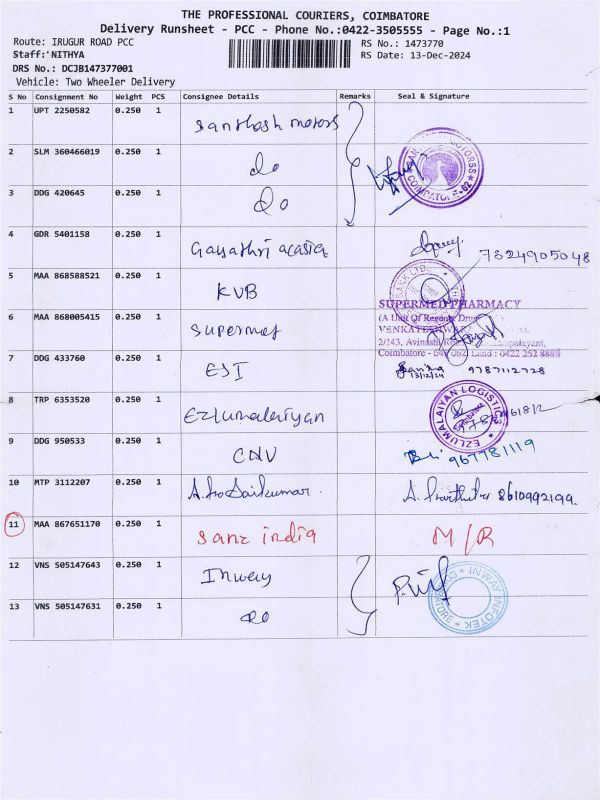 THE PROFESSIONAL COURIERS, COIMBATORE
Delivery Runsheet - PCC - Phone No.:0422-3505555 - Page No.:1
Route: IRUGUR ROAD PCC
RS No.: 1473770
Staff:'NITHYA
RS Date: 13-Dec-2024
DRS No.: DCJB147377001
Vehicle: Two Wheeler Delivery
S No Consignment No Weight PCS Consignee Details Remarks Seal & Signature
1 UPT 2250582 0.250 1 Santhosh motors
2 SLM 360466019 0.250 1 do
COIMBATORE-02
3 DDG 420645 0.250 1 do
4 GDR 5401158 0.250 1 Gayathri acasia 7824905048
5 MAA 868588521 0.250 1 KVB
BANK LTD.
SUPERMED PHARMACY
6 MAA 868005415 0.250 1 Supermed
(A Unit Of
VENKATESHWAR
2/143, Avinashi
Coimbatore - 641 062. Land : 0422 252 8888
7 DDG 433760 0.250 1 ESI 13/12/24 9787112728
8 TRP 6353520 0.250 1 Ezlumalaiyan
EZLUMALAIYAN LOGISTICS
9 DDG 950533 0.250 1 CNV 967781119
10 MTP 3112207 0.250 1 A. Saikumar. 8610992199.
11 MAA 867651170 0.250 1 Sanz india M/R
12 VNS 505147643 0.250 1 Inway
INWAY INFOTEK
13 VNS 505147631 0.250 1 do